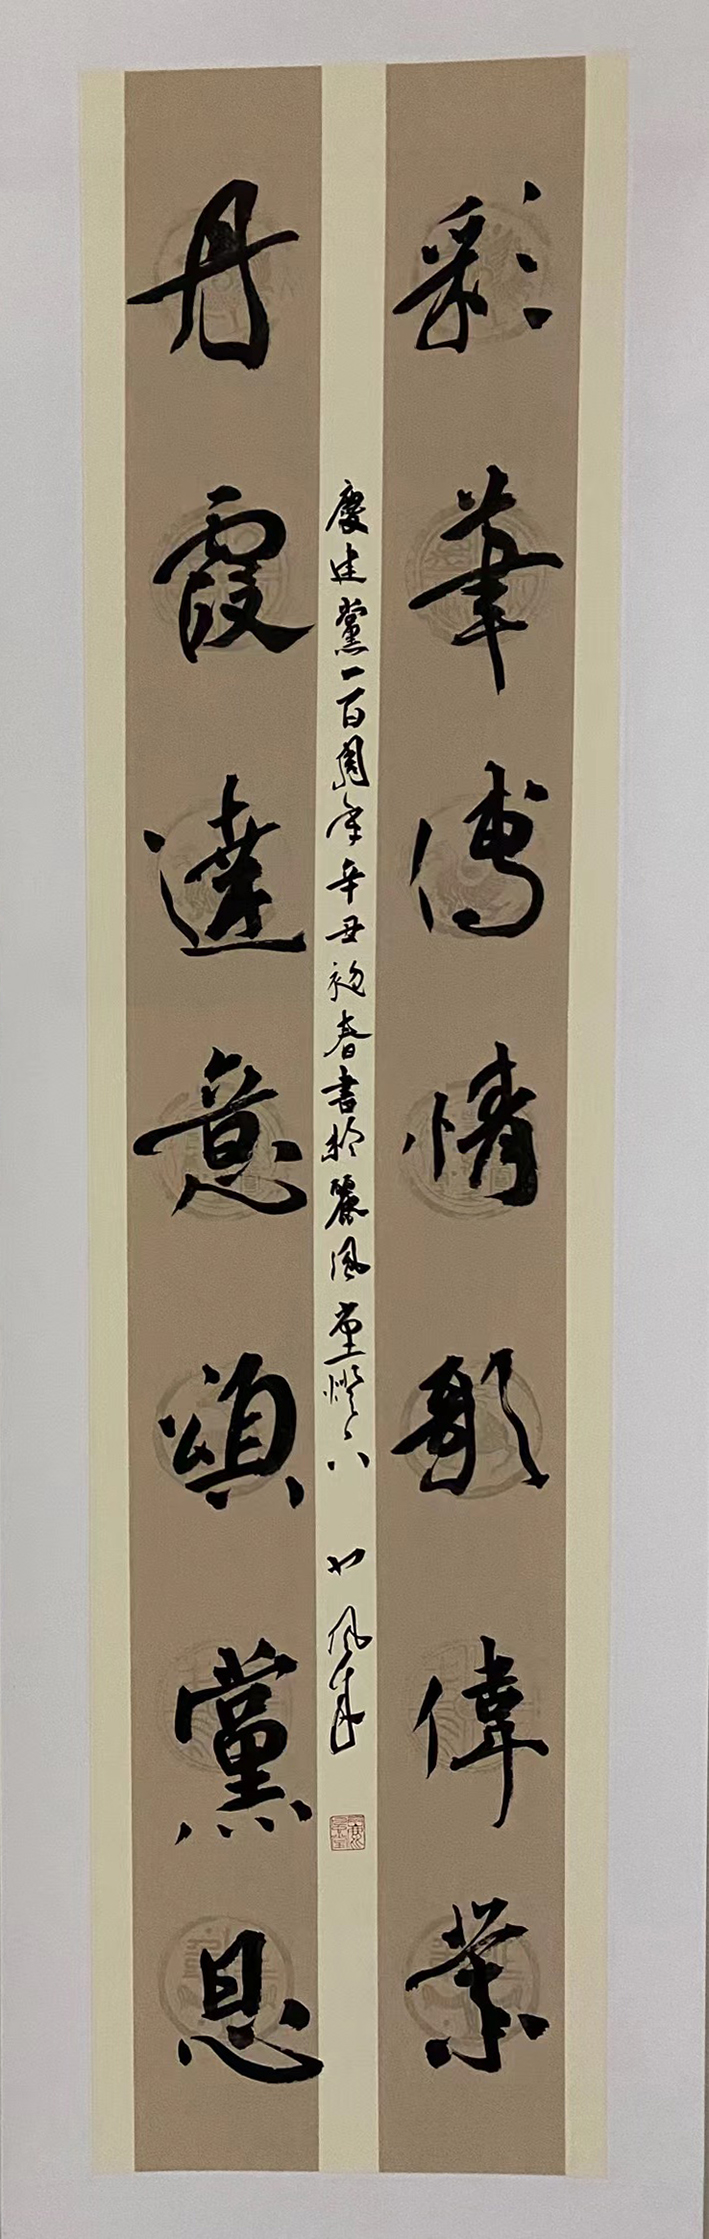 彩筆傳情歌偉業
丹霞達意頌黨恩
慶建黨一百周年辛丑初春書於麗風堂燈下